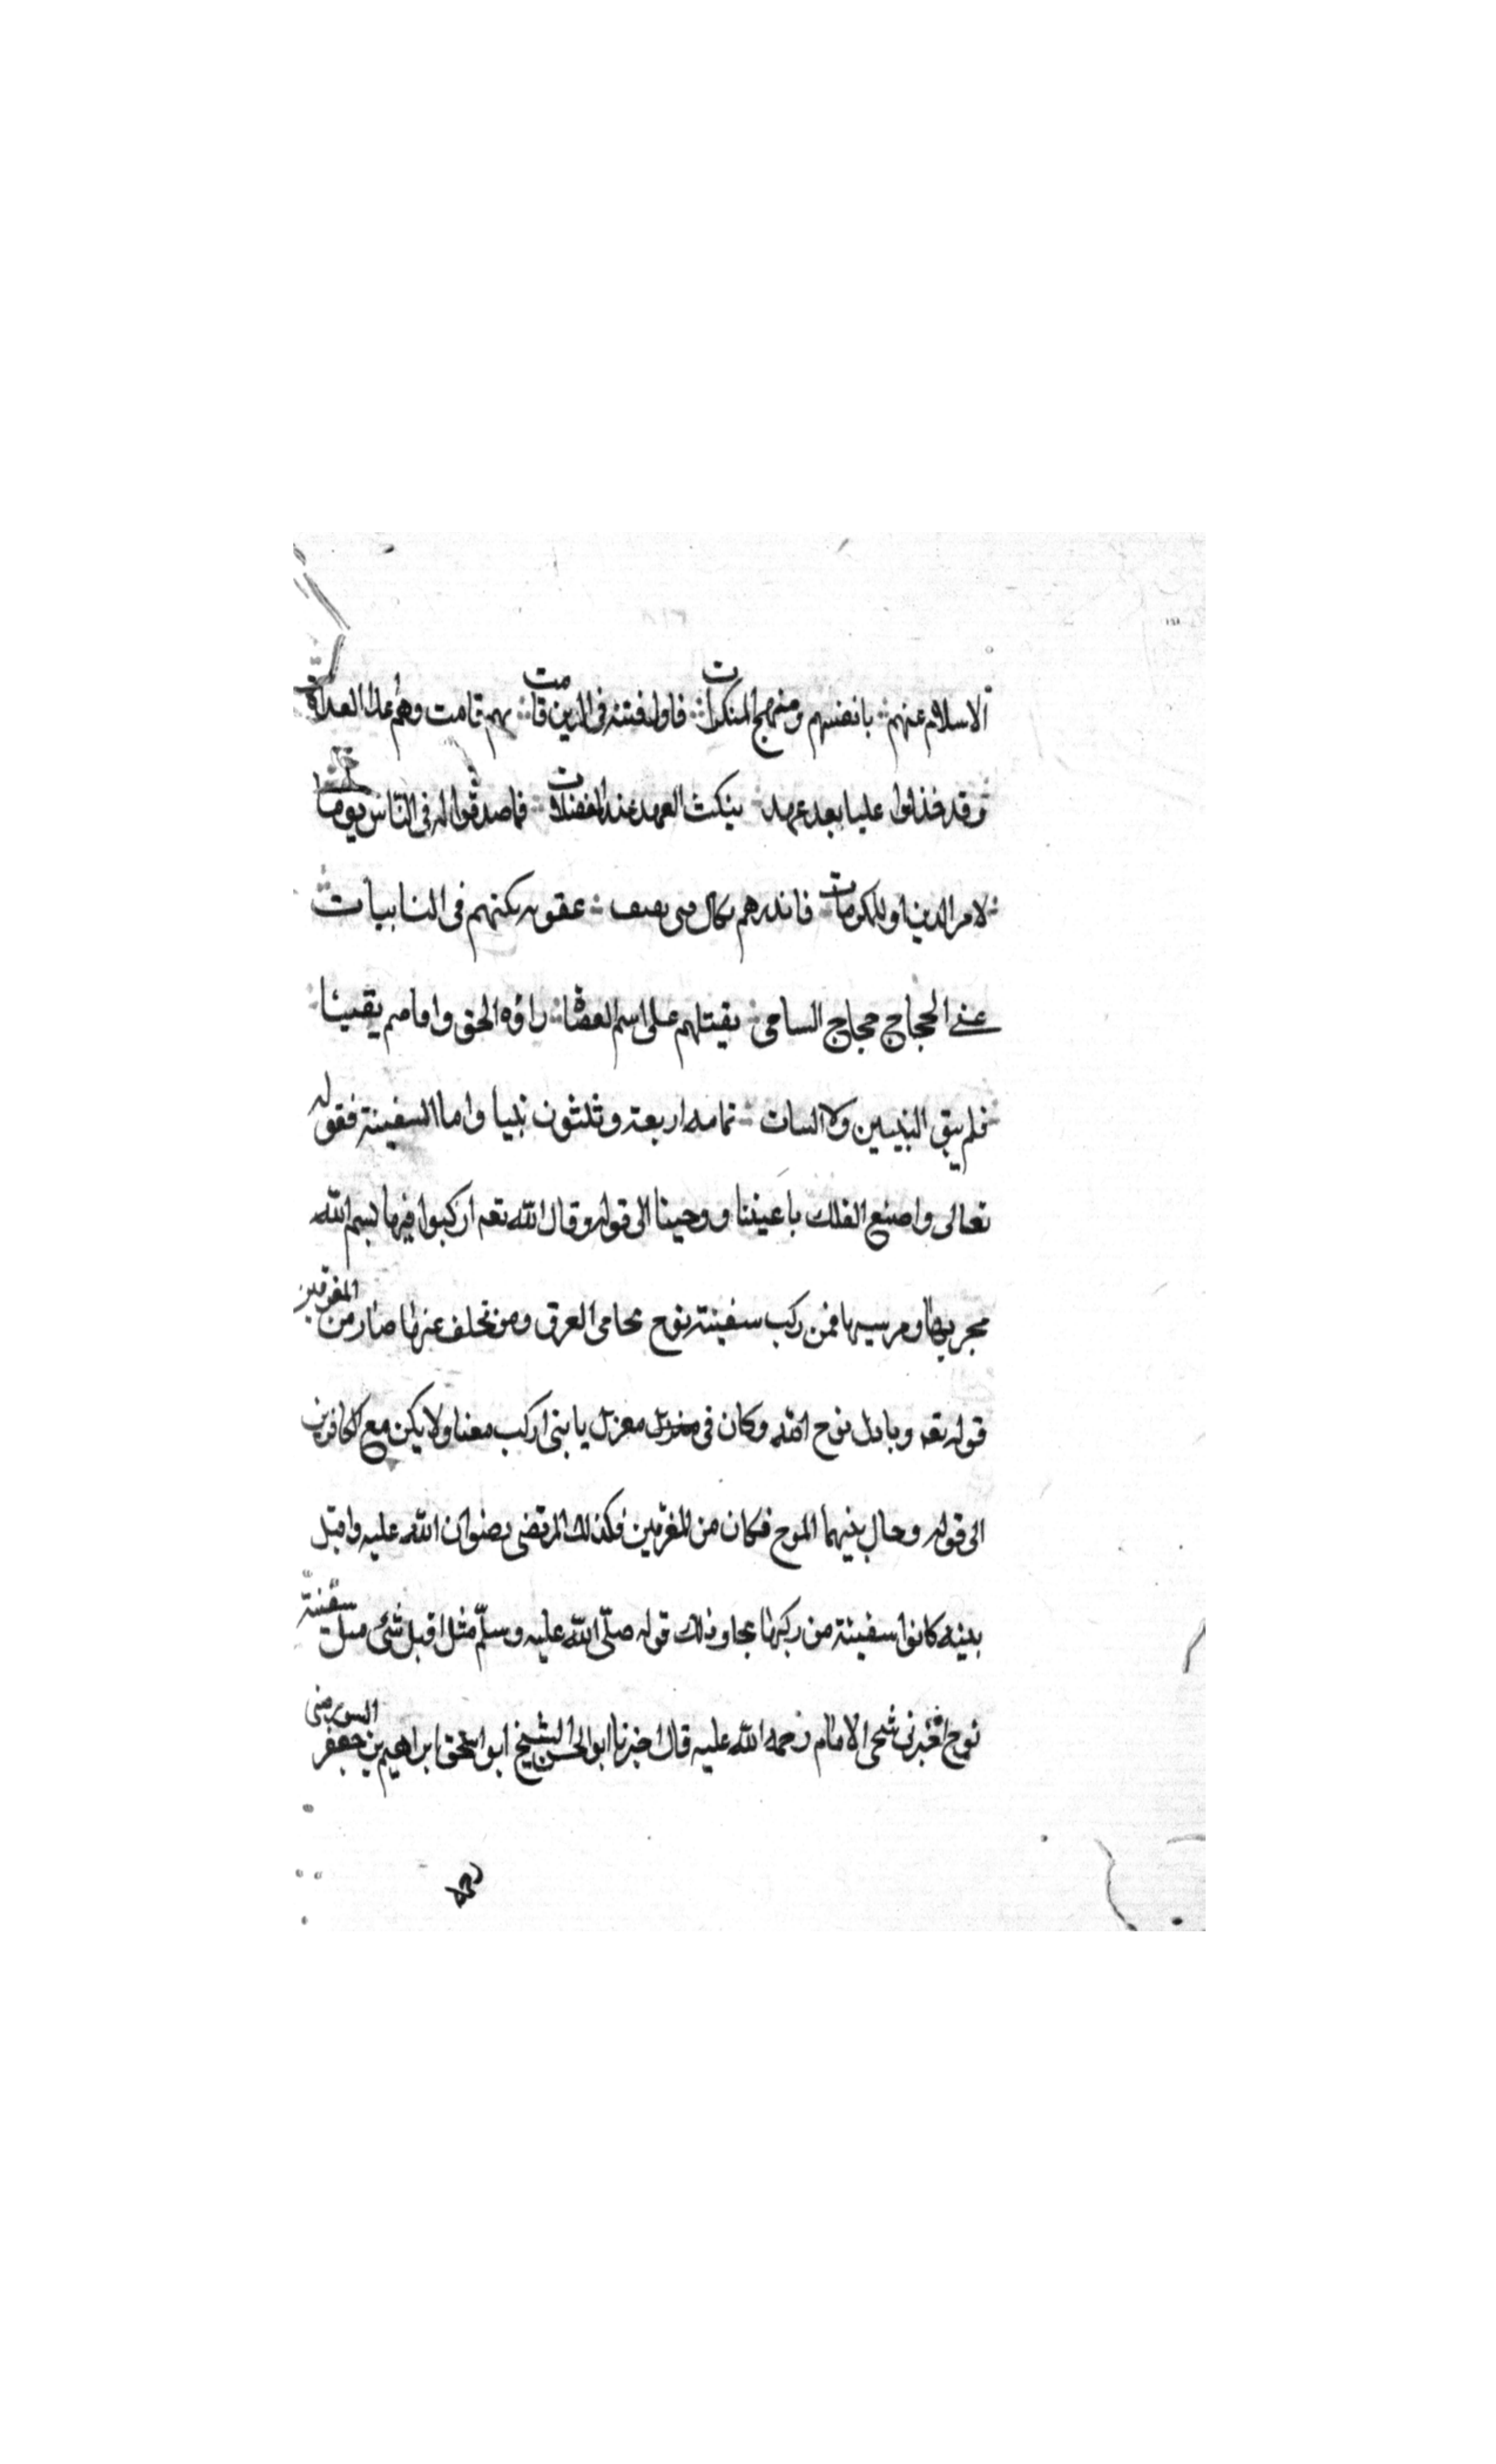 الاسلام عنهم بانفسهم ومنهج المنكرات فاول فتنة فى الدين قامت بهم قامت وهم علل العداة
وقد خذلوا عليا بعد عهد بنكث العهد عند المفضلات فما صدقوا له فى الناس يوما
لامر الدين او للمكرمات فانذرهم بكال فى النابيات
عنى الحجاج حجاج السامى بقتلهم على اسم العصاة راؤه الحق وامامهم يقينا
فلم يبق البنين ولا البنات تمامه اربعة وثلثون بيتا واما السفينة فقوله
تعالى واصنع الفلك باعيننا ووحينا الى قوله وقال الله تعم اركبوا فيها بسم الله
مجريها ومرسيها فمن ركب سفينة نوح نجا من الغرق ومن تخلف عنها صار من المغرقين
قوله تعه ونادى نوح ابنه وكان فى معزل يا بنى اركب معنا ولا يكن مع الكافرين
الى قوله وحال بينهما الموج فكان من المغرقين فكذلك المرتضى رضوان الله عليه واهل
بيته كانوا سفينة من ركبها نجا وذلك قوله صلى الله عليه وسلم مثل اهل بيتى مثل سفينة
نوح اخبرنى شيخى الامام رحمة الله عليه قال اخبرنا ابو الحسن الشيخ ابو اسحق ابراهيم بن جعفر